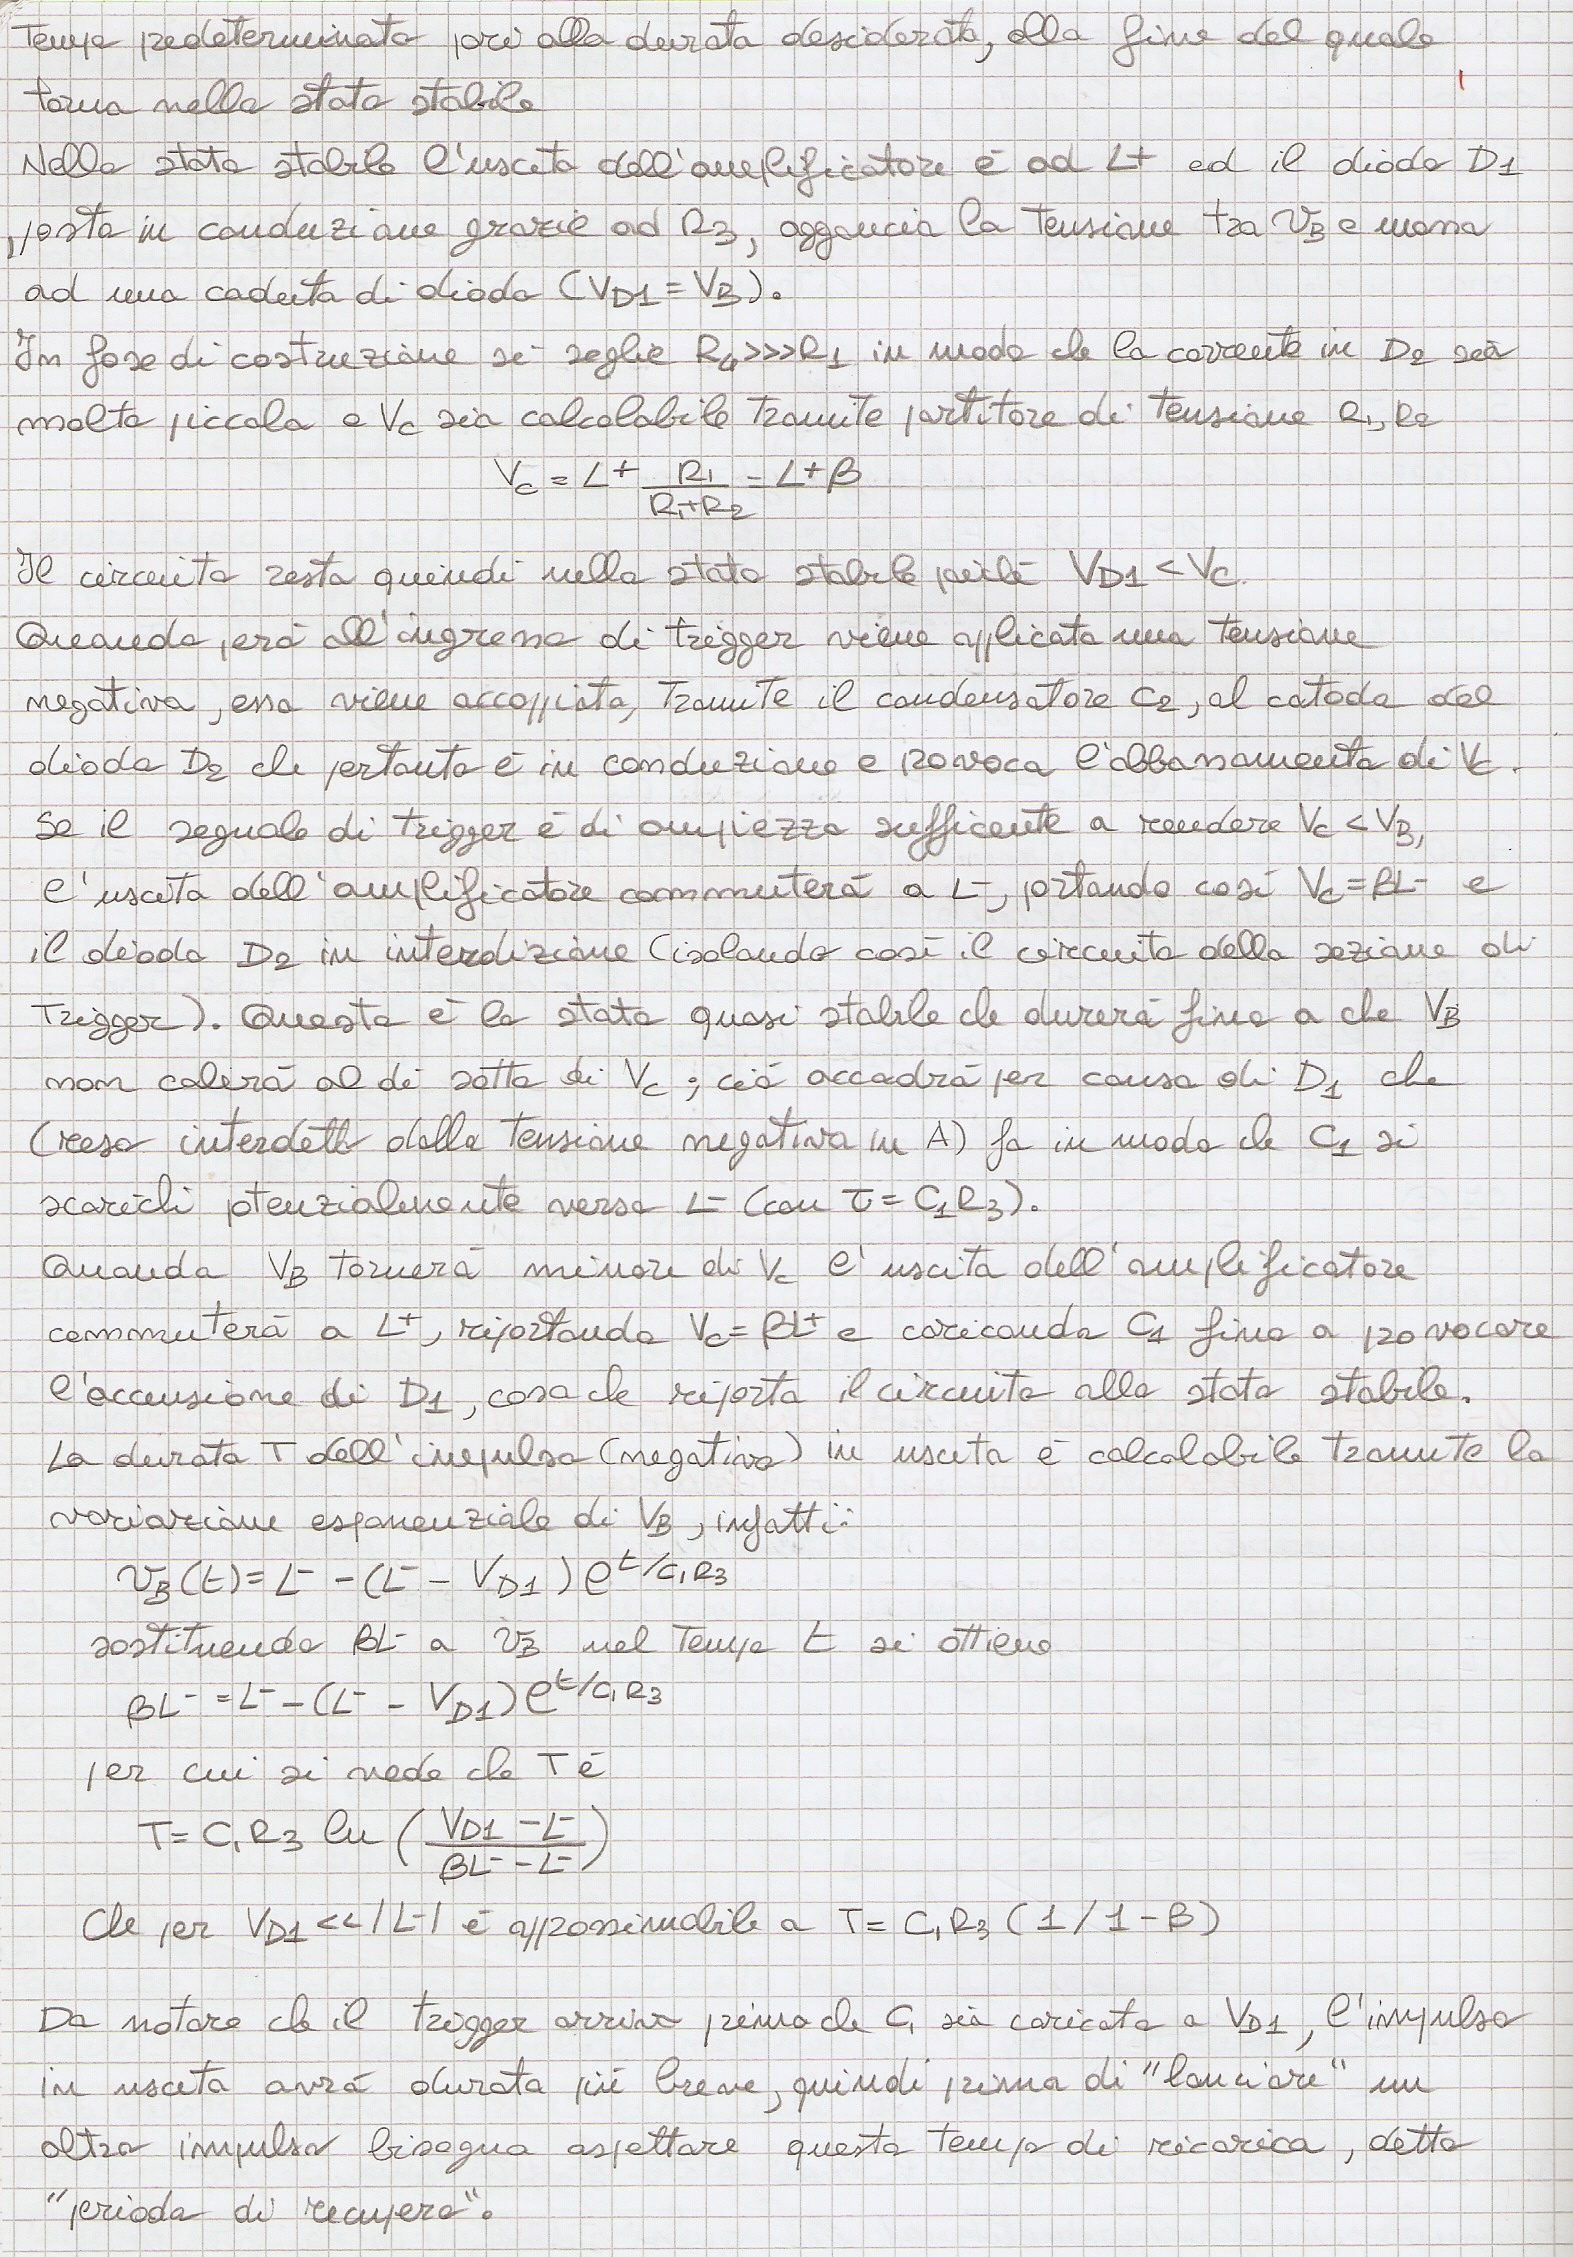 Tempo predeterminato pari alla durata desiderata, alla fine del quale
torna nello stato stabile
Nello stato stabile l'uscita dell'amplificatore è ad L+ ed il diodo D1
, posto in conduzione grazie ad R3, aggancia la tensione tra VB e massa
ad una caduta di diodo (VD1 = VB).
In fase di costruzione si seglie R4>>>R1 in modo che la corrente in D2 sia
molto piccola e Vc sia calcolabile tramite partitore di tensione R1, R2
Vc = L+ R1/(R1+R2) = L+β
Il circuito resta quindi nello stato stabile poichè VD1 < Vc.
Quando però all'ingresso di trigger viene applicata una tensione
negativa, essa viene accoppiata, tramite il condensatore C2, al catodo del
diodo D2 che pertanto è in conduzione e provoca l'abbassamento di Vc.
Se il segnale di trigger è di ampiezza sufficente a rendere Vc < VB,
l'uscita dell'amplificatore commuterà a L-, portando così Vc = βL- e
il diodo D2 in interdizione (isolando così il circuito della sezione di
Trigger). Questo è lo stato quasi stabile che durerà fino a che VB
non calerà al di sotto di Vc; ciò accadrà per causa di D1 che
(reso interdetto dalla tensione negativa in A) fa in modo che C1 si
scarichi ptenzialmente verso L- (con τ = C1R3).
Quando VB tornerà minore di Vc l'uscita dell'amplificatore
commuterà a L+, riportando Vc = βL+ e caricando C1 fino a provocare
l'accensione di D1, cosa che riporta il circuito allo stato stabile.
La durata T dell'impulso (negativo) in uscita è calcolabile tramite la
variazione esponenziale di VB, infatti:
VB(t) = L- - (L- - VD1) e^t/C1R3
sostituendo βL- a VB nel tempo t si ottiene
βL- = L- - (L- - VD1) e^t/C1R3
per cui si vede che T è
T = C1R3 ln ((VD1 - L-)/(βL- - L-))
Che per VD1 << |L-| è approssimabile a T = C1R3 (1/1-β)
Da notare che il trigger arriva prima che C1 sia caricato a VD1, l'impulso
in uscita avrà durata più breve, quindi prima di "lanciare" un
altro impulso bisogna aspettare questo tempo di ricarica, detto
"periodo di recupero".